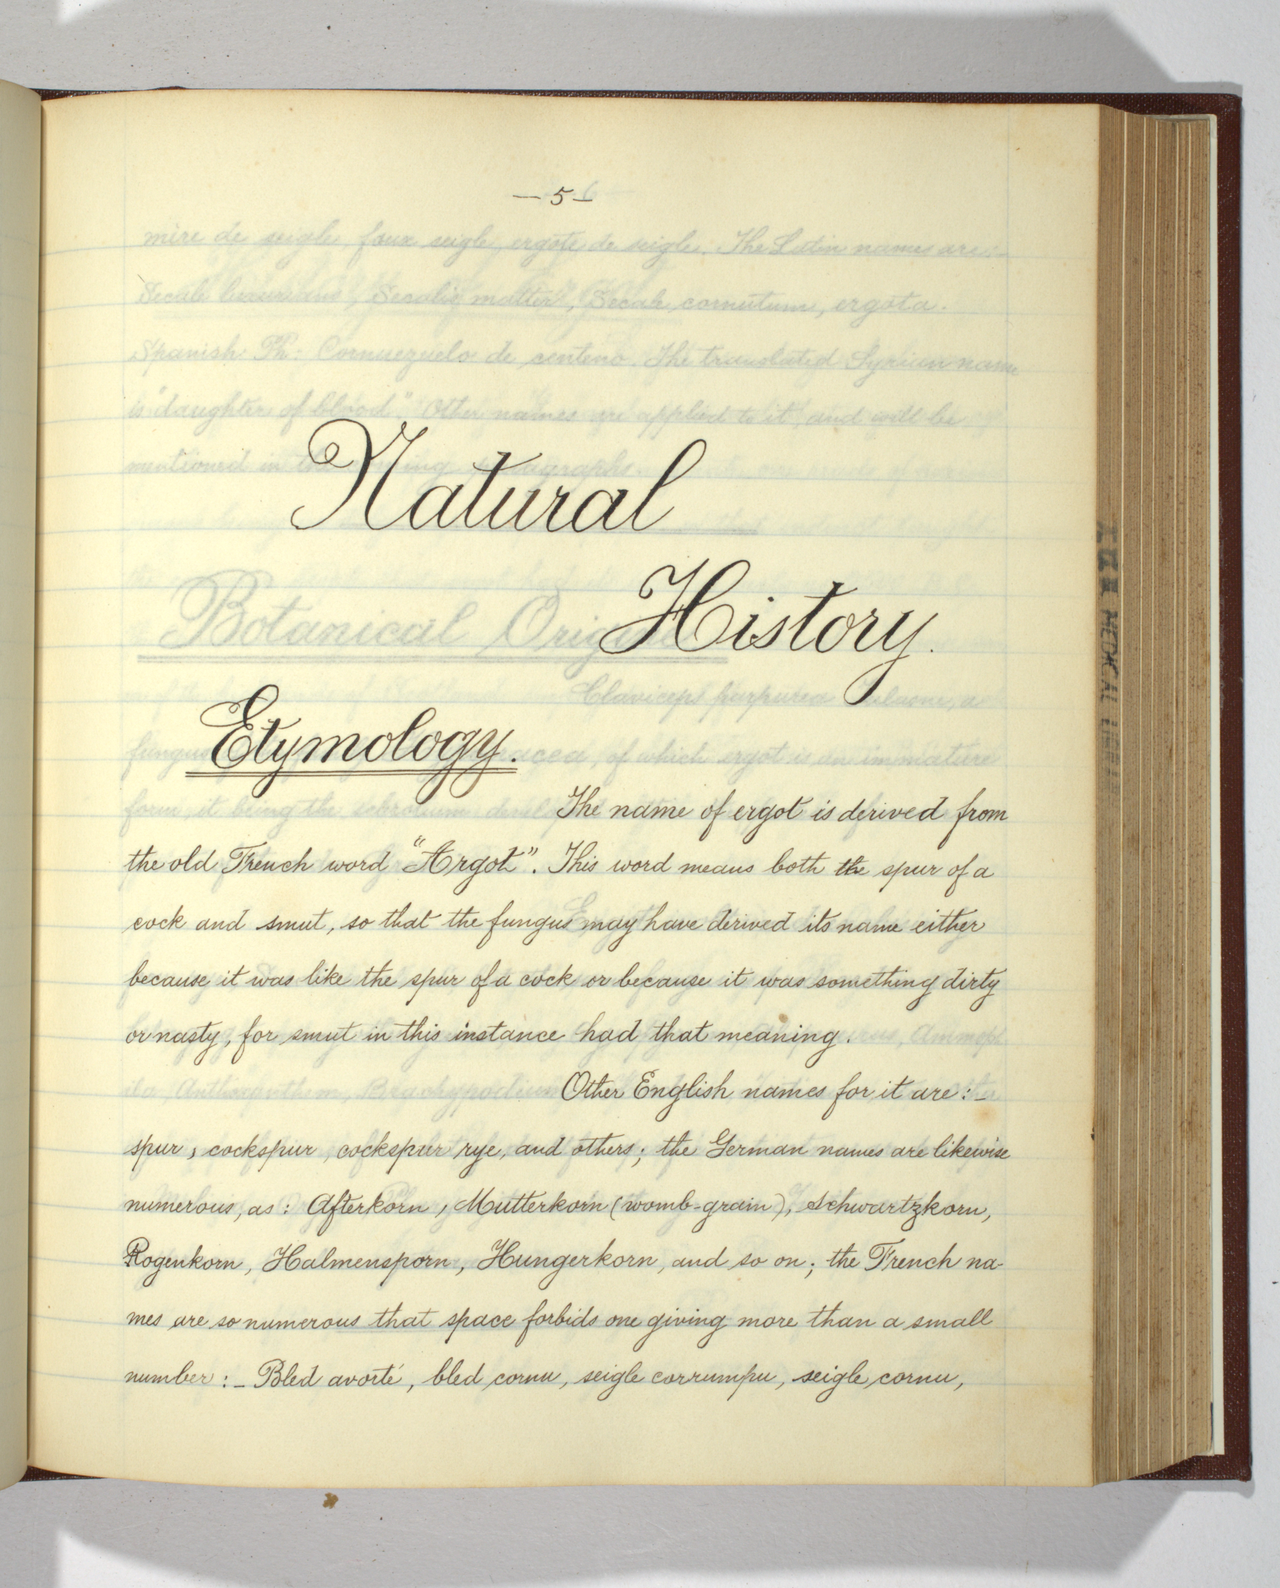 — 5 —
Natural
History.
Etymology.
The name of ergot is derived from
the old French word "Argot". This word means both the spur of a
cock and smut, so that the fungus may have derived its name either
because it was like the spur of a cock or because it was something dirty
or nasty, for smut in this instance had that meaning.
Other English names for it are :_
spur, cockspur, cockspur rye, and others; the German names are likewise
numerous, as: Afterkorn, Mutterkorn (womb-grain), Schwartzkorn,
Rogenkorn, Halmensporn, Hungerkorn, and so on; the French na-
mes are so numerous that space forbids one giving more than a small
number :_ Bled avorté, bled cornu, seigle corrumpu, seigle cornu,
MEDICAL